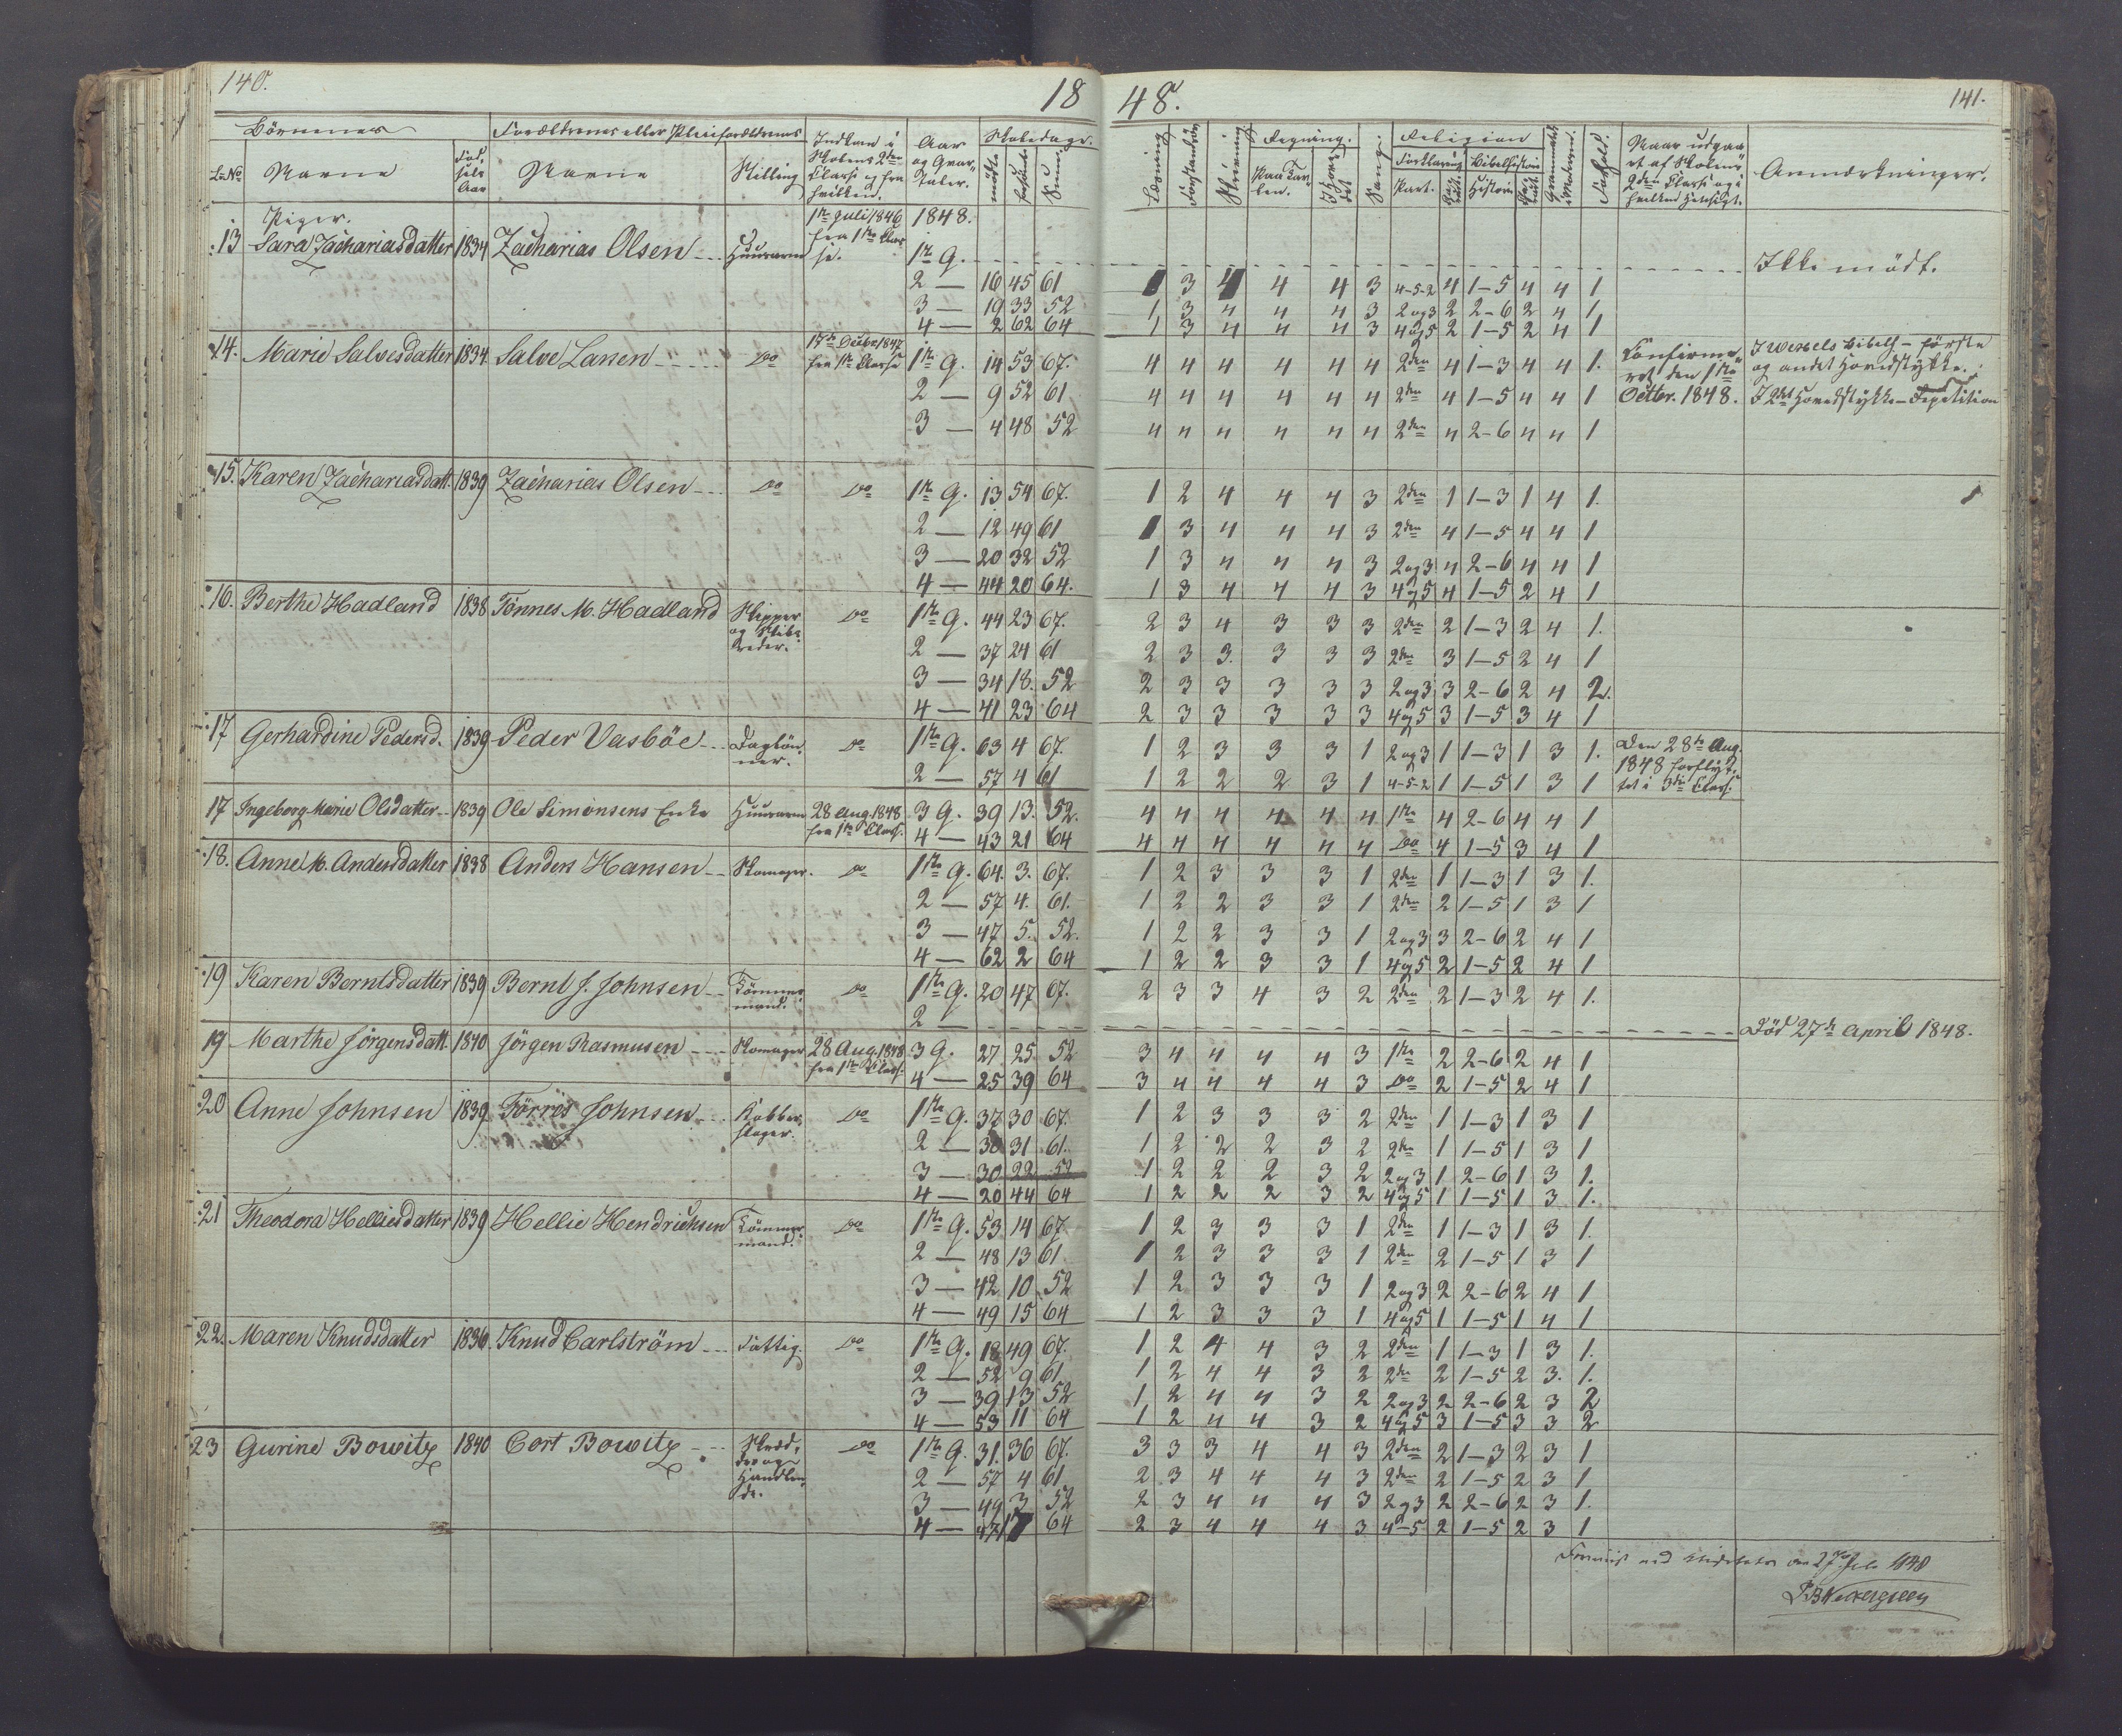 140.
18
48.
141.
Børnenes
Forældrenes eller Pleieforældrenes
Indkom i Skolens 2den Classe og fra hvilken.
Aar og Qvartaler.
Skoledage.
L. No
Navne
Fødselsaar
Navne
Stilling
mødte
forsømte
Sum.
Læsning
Forstandsøv.
Skrivning
Regning.
Paa Tavlen.
I Hovedet
Sang.
Religion
Forklaring
Bibelhistorie
Part.
Historie
Forhold.
Naar udgaaet af Skolens 2den Classe og i hvilken Hensigt.
Anmærkninger.
Piger.
13 Sara Zachariasdatter 1834 Zacharias Olsen Huusarm 1ste Juli 1846 fra 1ste Classe. 1848.
1ste Q. Ikke mødt.
2 — 16 45 61 1 3 4 4 4 3 4-5-2 4 1-5 4 4 1
3 — 19 33 52 1 3 4 4 4 3 2 og 3 2 2-6 2 4 1
4 — 2 62 64 1 3 4 4 4 3 4 og 5 2 1-5 2 4 1
14. Marie Salvesdatter 1834. Salve Larsen Do 17de Decbr 1847 fra 1ste Classe 1ste Q. 14 53 67. 4 4 4 4 4 4 2den 4 1-3 4 4 1. Confirmeret den 1ste Octbr. 1848. I Wexels Bibelh - første og andet Hovedstykke.
2 — 9 52 61 4 4 4 4 4 4 2den 4 1-5 4 4 1 I 2det Hovedstykke - Repetition
3 — 4 48 52 4 4 4 4 4 4 2den 4 2-6 4 4 1
15. Karen Zachariasdatt. 1839 Zacharias Olsen Do Do 1ste Q. 13 54 67. 1 2 4 4 4 3 2den 1 1-3 1 4 1.
2 — 12 49 61 1 3 4 4 4 3 2den 4 1-5 4 4 1
3 — 20 32 52 1 3 4 4 4 3 2 og 3 4 2-6 4 4 1
4 — 44 20 64. 1 3 4 4 4 3 4 og 5 4 1-5 2 4 1
16. Berthe Hadland 1838 Tønnes M. Hadland Skipper og Skibsreder. Do 1ste Q. 44 23 67. 2 3 4 3 3 3 2den 2 1-3 2 4 1.
2 — 37 24 61 2 3 3. 3 3 3 2den 3 1-5 2 4 1
3 — 34 18. 52 2 3 3 3 3 3 2 og 3 3 2-6 2 4 2.
4 — 41 23 64 2 3 3 3 3 3 4 og 5 3 1-5 3 4 1
17 Gerhardine Pedersd. 1839 Peder Vasbøe Daglønner. Do 1ste Q. 63 4 67. 1 2 3 3 3 1 2 og 3 1 1-3 1 3 1. Den 28de Aug. 1848 forflyttet i 3die Class.
2 — 57 4 61 1 2 2 2 3 1 4-5-2 1 1-5 1 3 1
17 Ingeborg Marie Olsdatter 1839 Ole Simonsens Enke Huusarm 28 Aug. 1848 fra 1ste Class. 3 Q. 39 13. 52. 4 4 4 4 4 4 1ste 4 2-6 4 4 1
4 — 43 21 64 4 4 4 4 4 4 Do 4 1-5 3 4 1
18. Anne M. Andersdatter 1838 Anders Hansen Skomager. Do 1ste Q. 64. 3. 67. 1 2 3 3 3 1 2den 1 1-3 1 3 1.
2 — 57 4. 61. 1 2 2 3 3 1 2den 2 1-5 1 3 1
3 — 47 5. 52. 1 2 2 3 3 1 2 og 3 3 2-6 2 4 1
4 — 62 2 64 1 2 2 3 3 1 4 og 5 2 1-5 2 4 1
19 Karen Berntsdatter 1839 Bernt J. Johnsen Tømmermand. Do 1ste Q. 20 47 67. 2 3 3 4 3 2 2den 2 1-3 2 4 1.
2 — Død 27de April 1848.
19 Marthe Jørgensdatt. 1840 Jørgen Rasmusen Skomager 28 Aug. 1848 fra 1ste Class. 3 Q. 27 25 52 3 4 4 4 4 3 1ste 2 2-6 2 4 1
4 — 25 39 64 3 4 4 4 4 3 Do 2 1-5 2 4 1
20 Anne Johnsen 1839 Tørres Johnsen Kobberslager. Do 1ste Q. 37 30 67. 1 2 3 3 3 2 2den 1 1-3 1 3 1
2 — 30 31 61. 1 2 2 2 3 2 2den 1 1-5 1 3 1
3 — 30 22 52 1 2 2 2 3 2 2 og 3 1 2-6 1 3 1.
4 — 20 44 64 1 2 2 2 3 2 4 og 5 1 1-5 1 3 1.
21 Theodora Helliesdatter 1839 Hellie Hendrichsen Tømmermand. Do 1ste Q. 53 14 67 1 2 3 3 3 1 2den 1 1-3 1 3 1.
2 — 48 13 61 1 2 3 3 3 1 2den 2 1-5 1 3 1
3 — 42 10 52 1 2 3 3 3 1 2 og 3 2 2-6 2 4 1
4 — 49 15 64 1 2 3 3 3 1 4 og 5 1 1-5 1 4 1
22. Maren Knudsdatter 1836. Knud Carlstrøm Fattig. Do 1ste Q. 18 49 67. 1 2 4 4 3 2 2den 1 1-3 1 3 1.
2 — 52 9 61 1 2 4 4 3 2 2de 2 1-5 2 3. 1.
3 — 39 13 52 1 2 4 4 3 2 2 og 3 2 2-6 2 3 2
4 — 53 11 64 1 2 4 4 3 2 4 og 5 3 1-5 3 3 2
23 Gurine Bowitz 1840 Cort Bowitz Skrædder og Handlende. Do 1ste Q. 31. 36 67. 3 3 3 4 4 3 2den 2 1-3 2 3 1
2 — 57 4 61 2 3 4 4 4 3 2den 2 1-5 2 3 1
3 — 49 3 52 2 3 4 4 4 3 2 og 3 2 2-6 2 3 1.
4 — 47 17 64 2 3 4 4 4 3 4-5 2 1-5 2 3 1